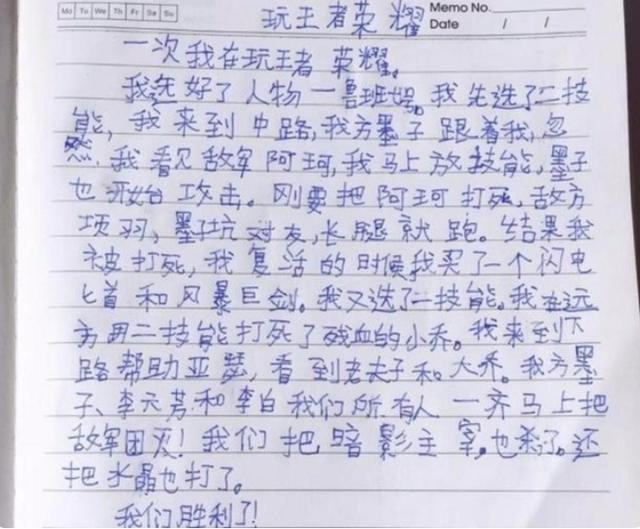 Mo Tu We Th Fr Sa Su
玩王者荣耀
Memo No.
Date / /
一次我在玩王者荣耀。
我选好了人物一鲁班号。我先选了二技
能,我来到中路,我方墨子跟着我,忽
然我看见敌军阿珂,我马上放技能,墨子
也开始攻击。刚要把阿珂打死,敌方
项羽,墨子坑对友,长腿就跑。结果我
被打死,我复活的时候我买了一个闪电
匕首和风暴巨剑。我又选了二技能。我在远
方用二技能打死了残血的小乔。我来到下
路帮助亚瑟,看到老夫子和大乔。我方墨
子、李元芳和李白我们所有人一齐马上把
敌军团灭!我们把暗影主宰也杀了。还
把水晶也打了。
我们胜利了!